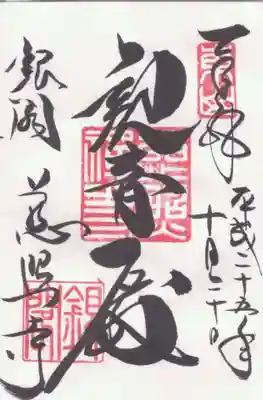 奉拝
平成二十五年
十月二十日
観音殿
銀閣 慈照寺